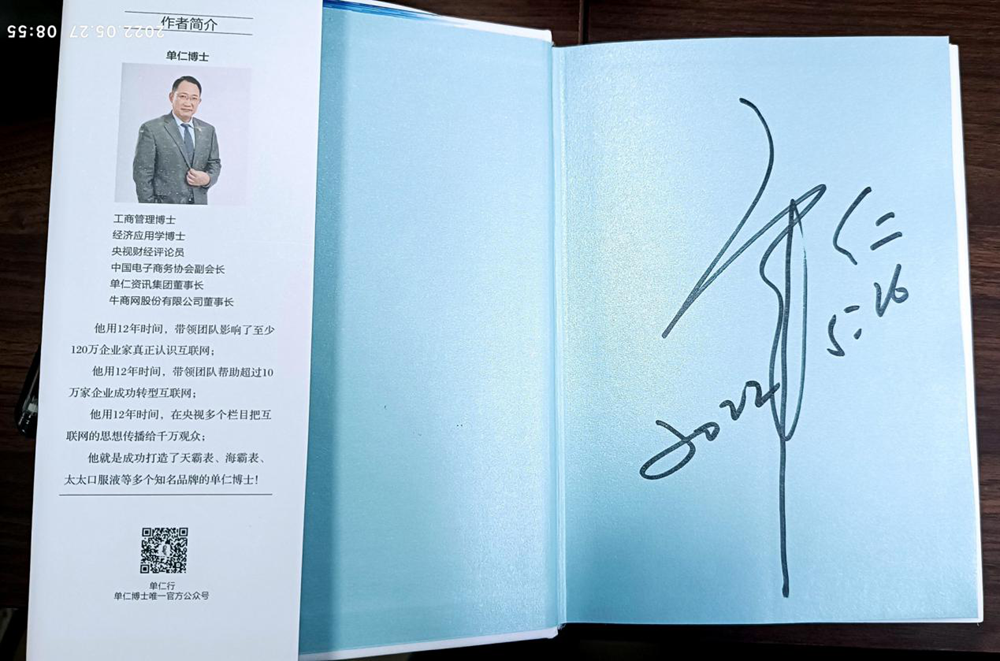 2022.05.27 08:55
作者简介
单仁博士
工商管理博士
经济应用学博士
央视财经评论员
中国电子商务协会副会长
单仁资讯集团董事长
牛商网股份有限公司董事长
他用12年时间，带领团队影响了至少
120万企业家真正认识互联网；
他用12年时间，带领团队帮助超过10
万家企业成功转型互联网；
他用12年时间，在央视多个栏目把互
联网的思想传播给千万观众；
他就是成功打造了天霸表、海霸表、
太太口服液等多个知名品牌的单仁博士！
单仁行
单仁博士唯一官方公众号
单仁
2022
5:26